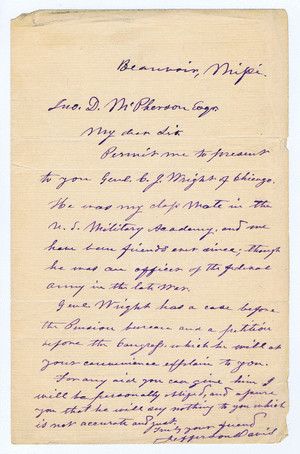 Beauvoir, Missi.
Jno. D. McPherson Esqr.
My dear Sir
Permit me to present
to you Genl. C. J. Wright of Chicago.
He was my class mate in the
U. S. Military Academy, and we
have been friends ever since; though
he was an officer of the federal
army in the late War.
Genl. Wright has a case before
the Pension bureau and a petition
before the Congress which he will at
your convenience explain to you.
For any aid you can give him I
will be personally obliged, and assure
you that he will say nothing to you which
is not accurate and just.
Truly your friend
Jefferson Davis